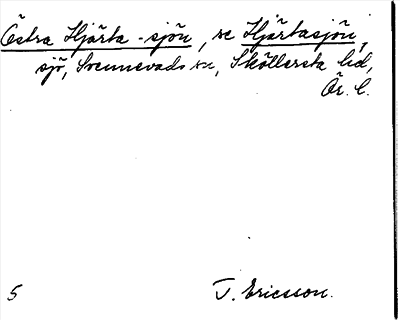 Östra Hjärta-sjön, se Hjärtasjön,
sjö, Svennevads sn, Sköllersta hd,
Ör. l.
5 T. Ericsson.